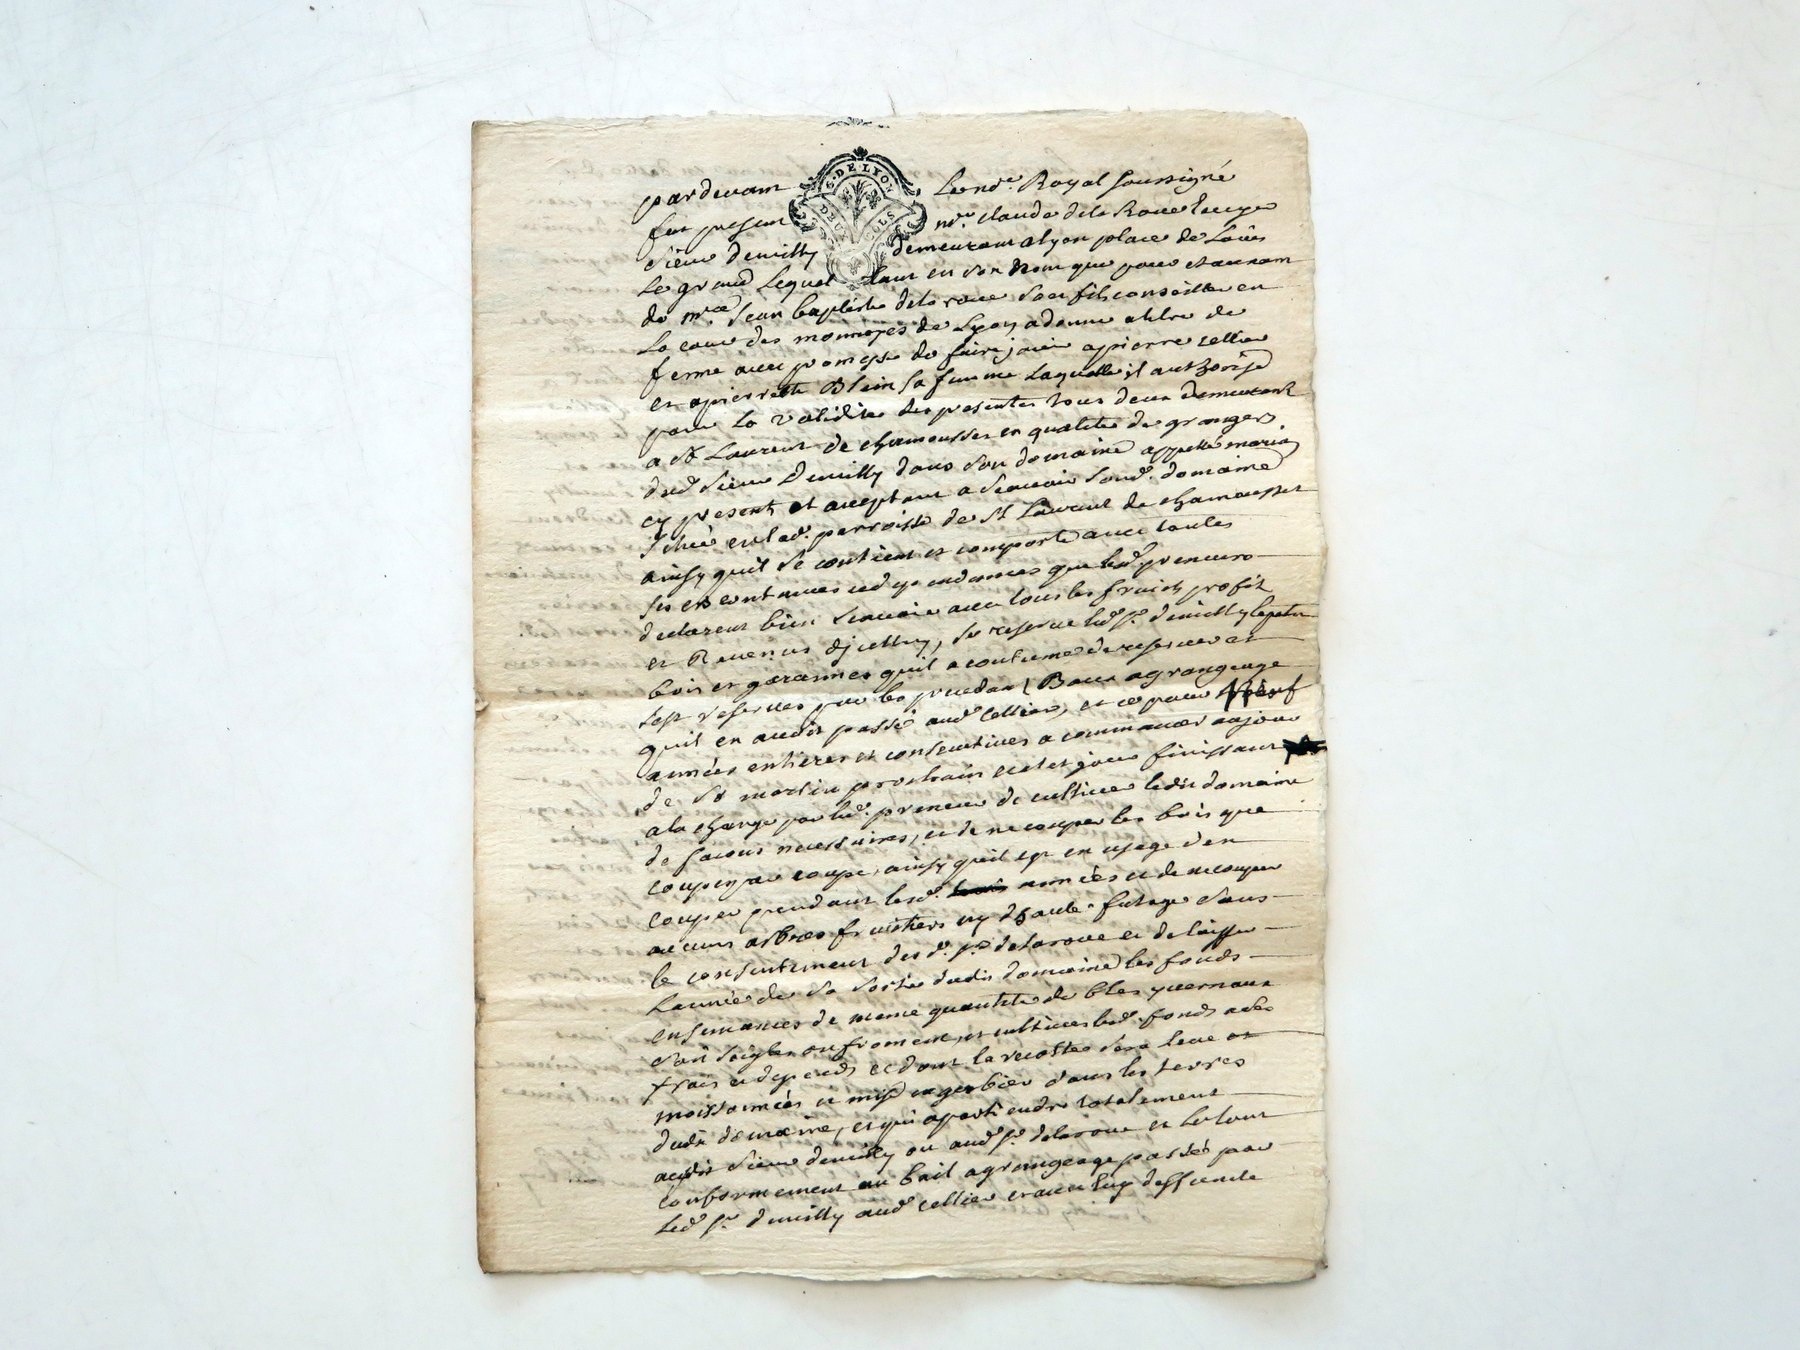 G. DE LYON
DEUX SOLS
pardevant Le no.re Royal soussigné
fut present m.re claude de la Roue
sieur demilly demeurant a lyon place de Loüis
Le grand Lequel tant en son Nom que pour et au nom
de m.re Jean baptiste dela roue son fils conseiller en
La cour des monnoyes de Lyon a donné a titre de
ferme avec promesse de faire jouir a pierre cellier
et a pierrette Blein sa femme Laquelle il authorise
pour La validité des presentes tous deux demeurant
a St Laurent de chamousset en qualité de granger
dud. sieur Demilly dans son domaine appellé
cy present et acceptant a scavoir sond. domaine
scitué en lad. parroisse de St Laurent de chamousset
ainsy quil se contient et comporte avec toutes
ses et dependances que led. preneurs
declarent bien scavoir avec tous les fruits profit
et Revenus dicelluy, se reserve led. s.r demilly
bois et garennes quil a coutume de reserver et
sest reservés par les precedant Baux a grangeage
quil en avoit passé aud. cellier, et ce pour
années entieres et consecutives a commancer au jour
de St martin prochain et tel jour finissant
a la charge par led. preneur de cultiver ledit domaine
de facons necessaires, et de ne couper les bois que
coupe par coupe, ainsy quil est en usage den
couper pendant lesd. années et de ne couper
aucuns arbres fruitiers ny dhaute futaye sans
le consentement dud. s.r delaroue et de laisser
Lannée de sa sortie dudit domaine les fonds
ensemancés de meme quantité de bles yvernaux
soit seigle ou froment, et cultiver led. fonds a ses
frais et depends et dont la recolte sera levé et
moissonnées et mise en gerbier dans les terres
dudit domaine, et qui apartiendra totalement
audit sieur demilly ou aud. s.r delaroue et le tout
conformement au bail a grangeage passé par
led. s.r demilly aud. cellier et avec luy deffunte